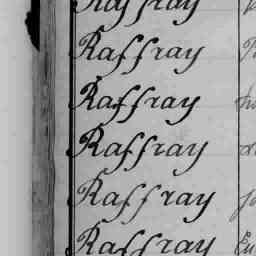 Raffray
Raffray
Raffray
Raffray
Raffray
Raffray